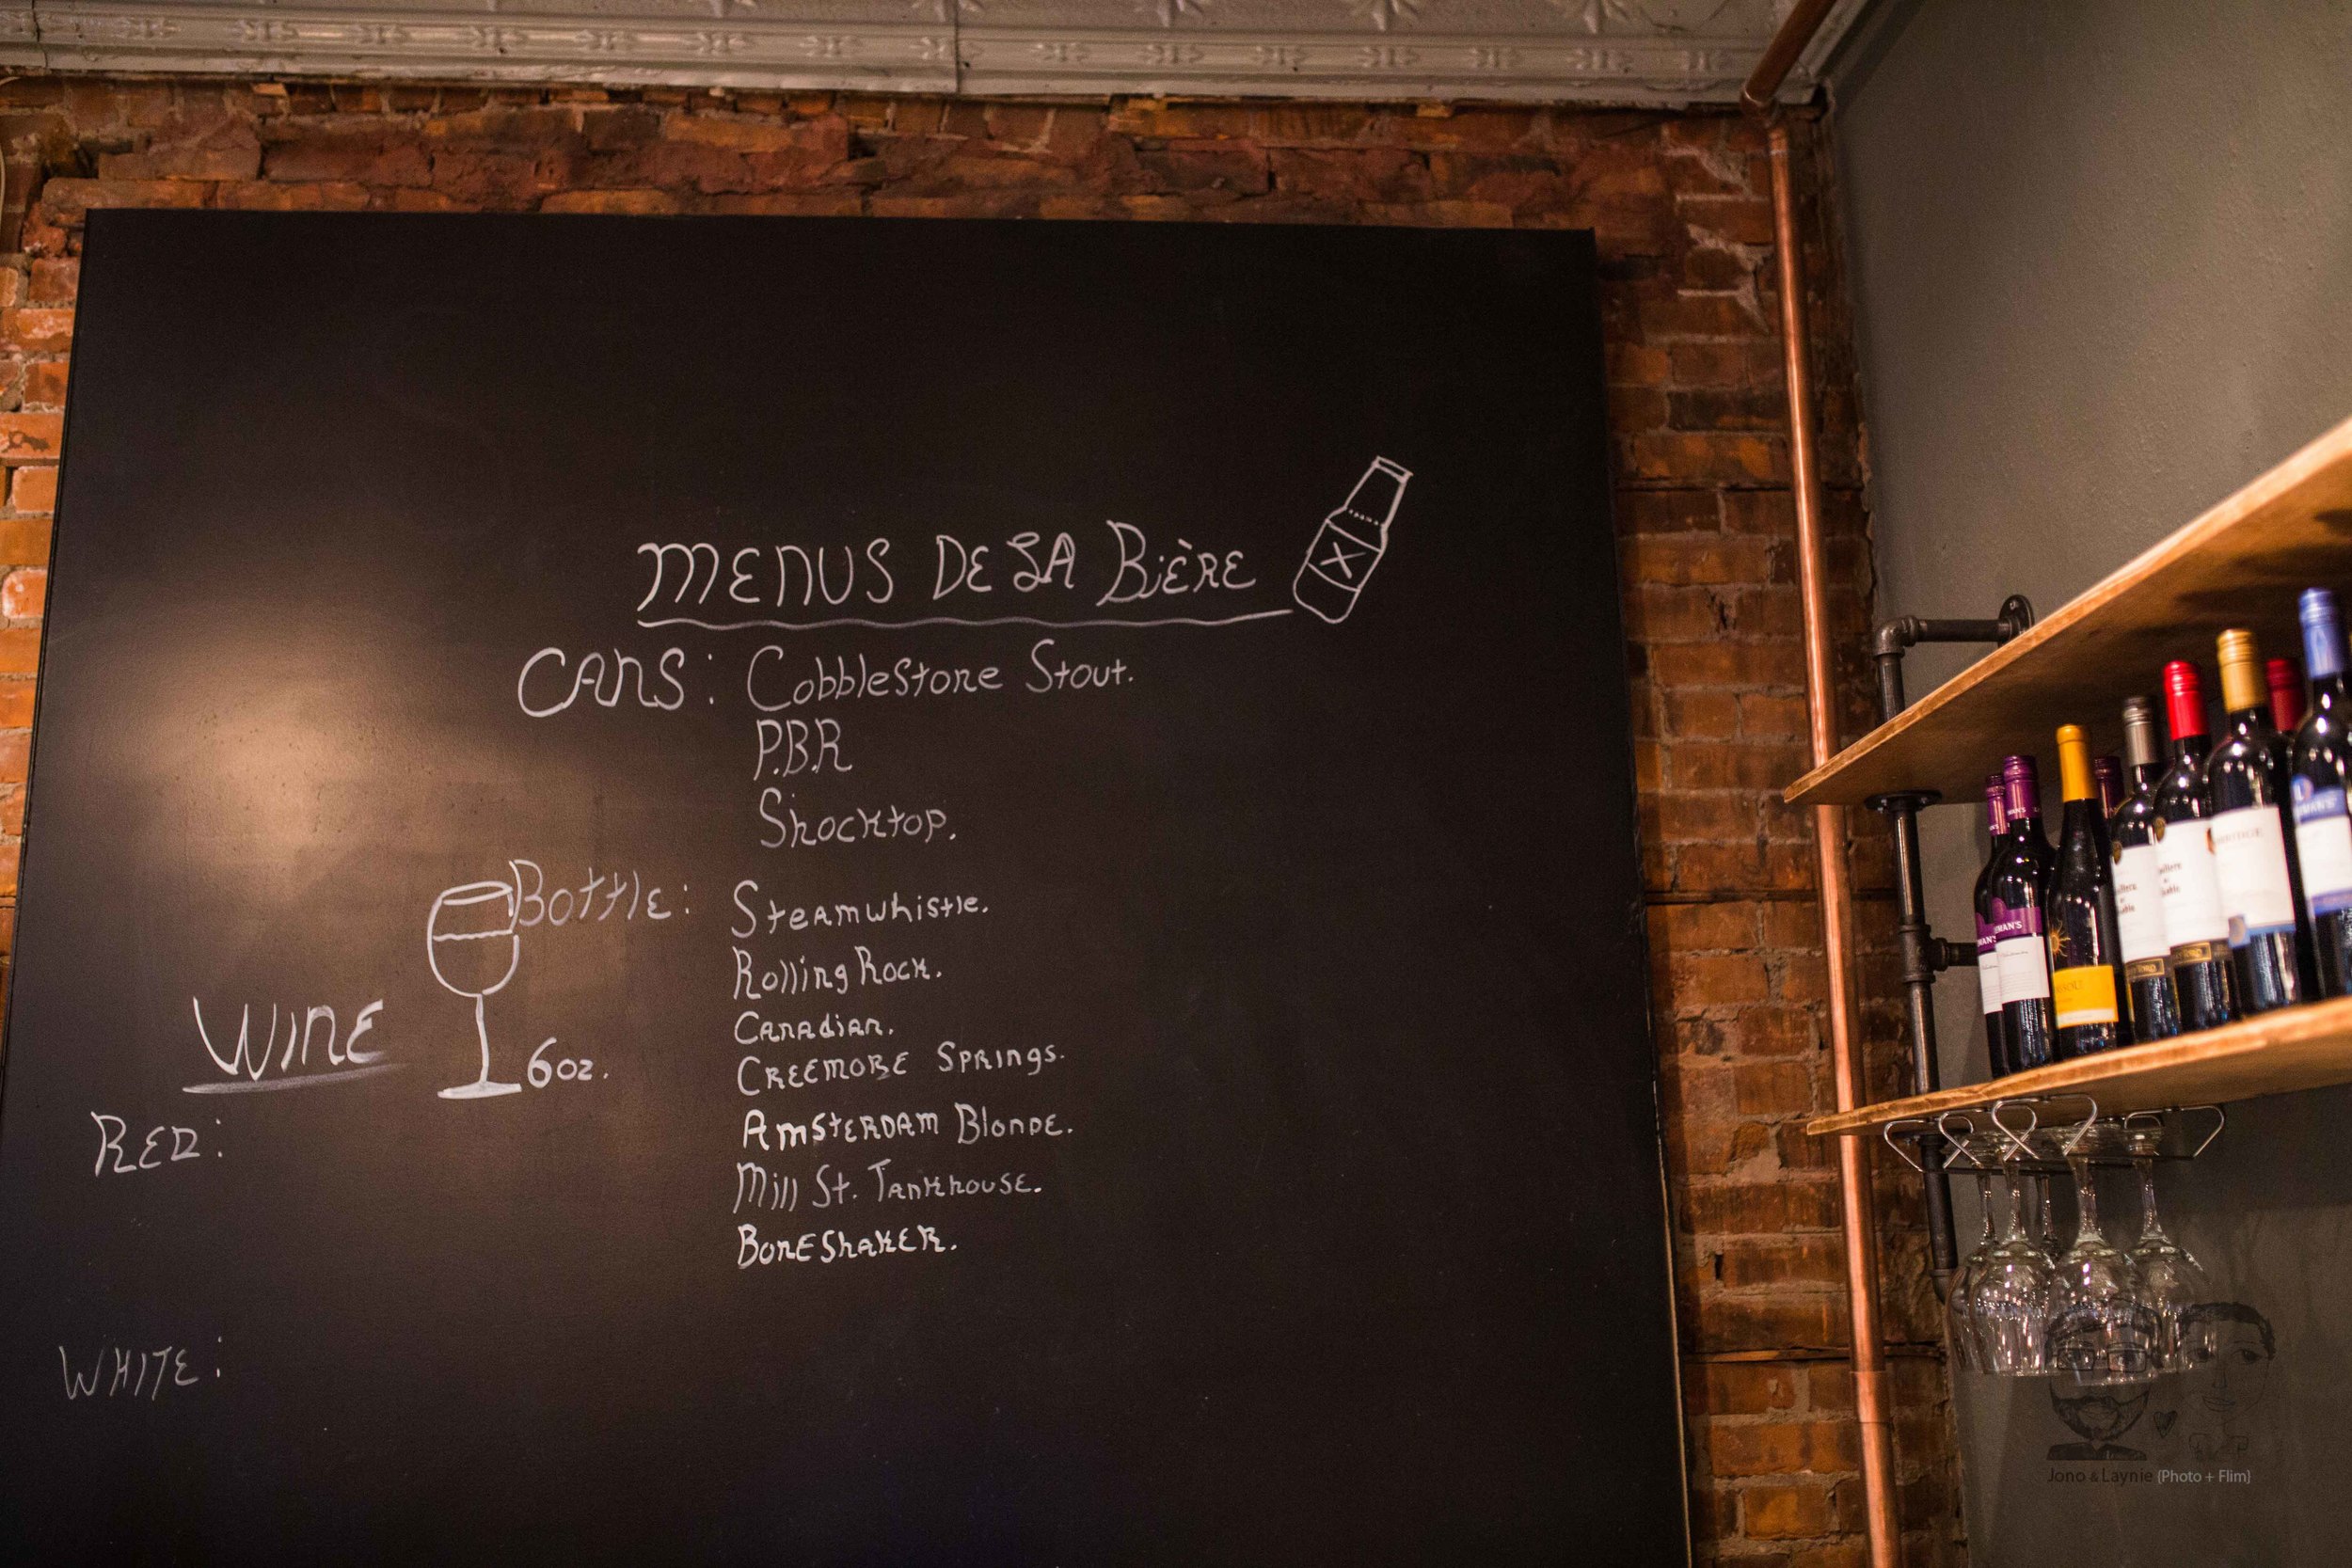 MENUS DE LA BIÈRE
X
CANS: Cobblestone Stout.
P.B.R
Shocktop.
Bottle: Steamwhistle.
Rolling Rock.
Canadian.
CREEMORE SPRINGS.
AMSTERDAM Blonde.
Mill St. TANKHOUSE.
BONESHAKER.
WINE
6oz.
RED:
WHITE:
MAN'S
Jono & Laynie {Photo + Flim}